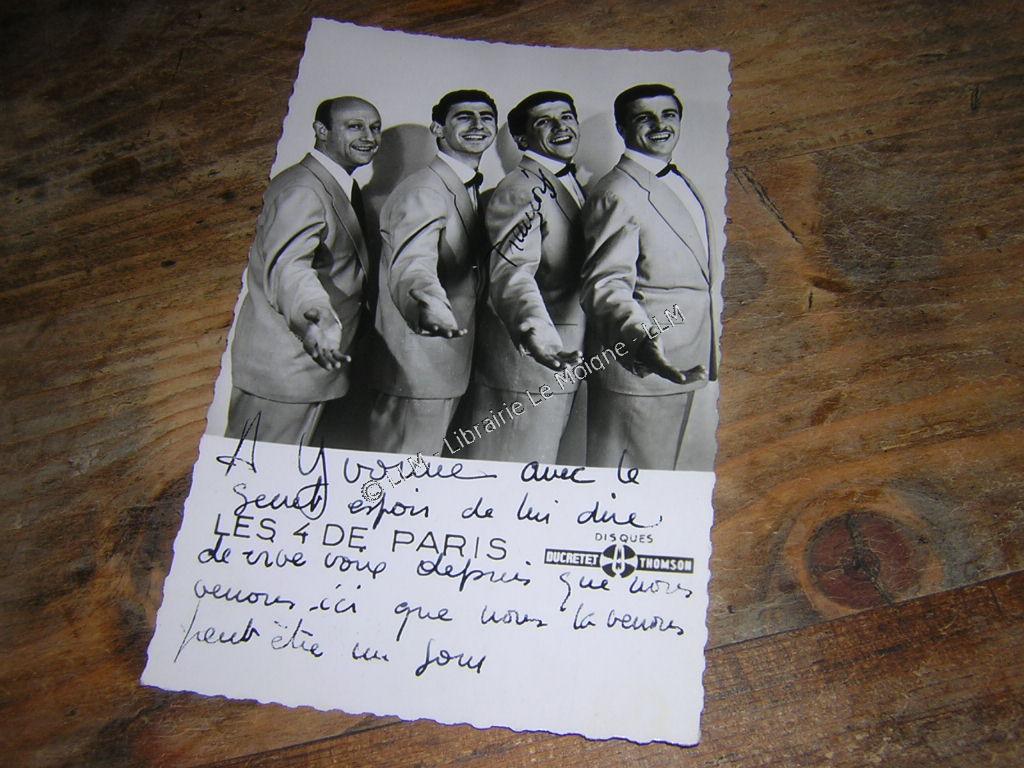 François
© LLM - Librairie Le Moigne - LLM
A Yvonne avec le
secret espoir de lui dire
LES 4 DE PARIS
DISQUES
DUCRETET THOMSON
de vive voix depuis que nous
venons ici que nous la venons
peut être un jour